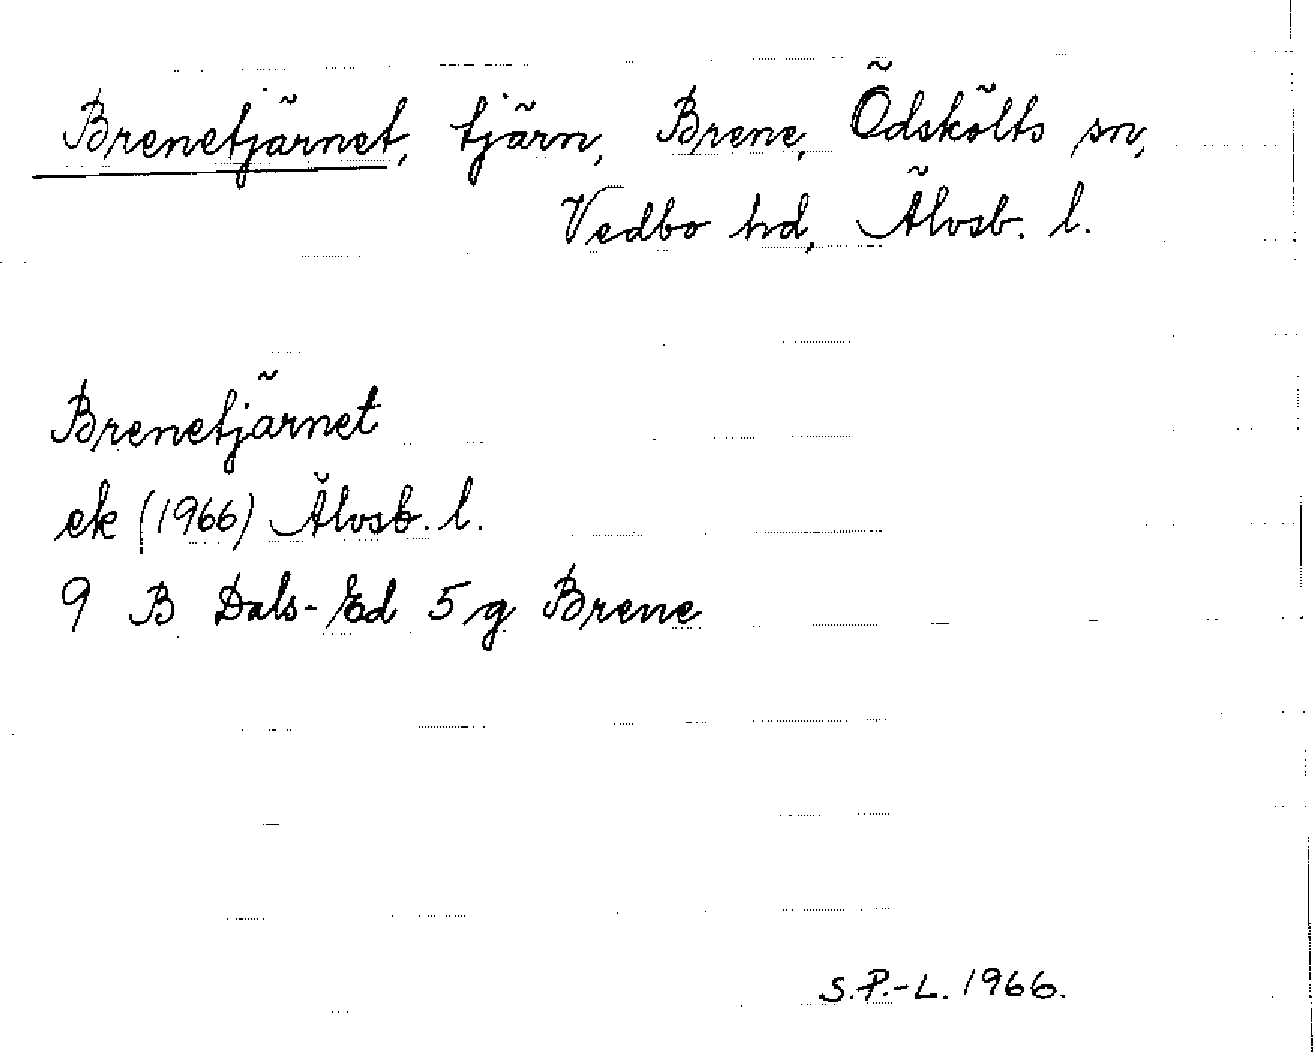 Brenetjärnet, tjärn, Brene, Ödskölts sn,
Vedbo hd, Älvsb. l.
Brenetjärnet
ek (1966) Älvsb. l.
9 B Dals-Ed 5 g Brene
S.P.-L. 1966.